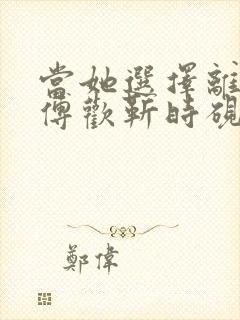 當她選擇離
傅歡靳時硯
鄭偉